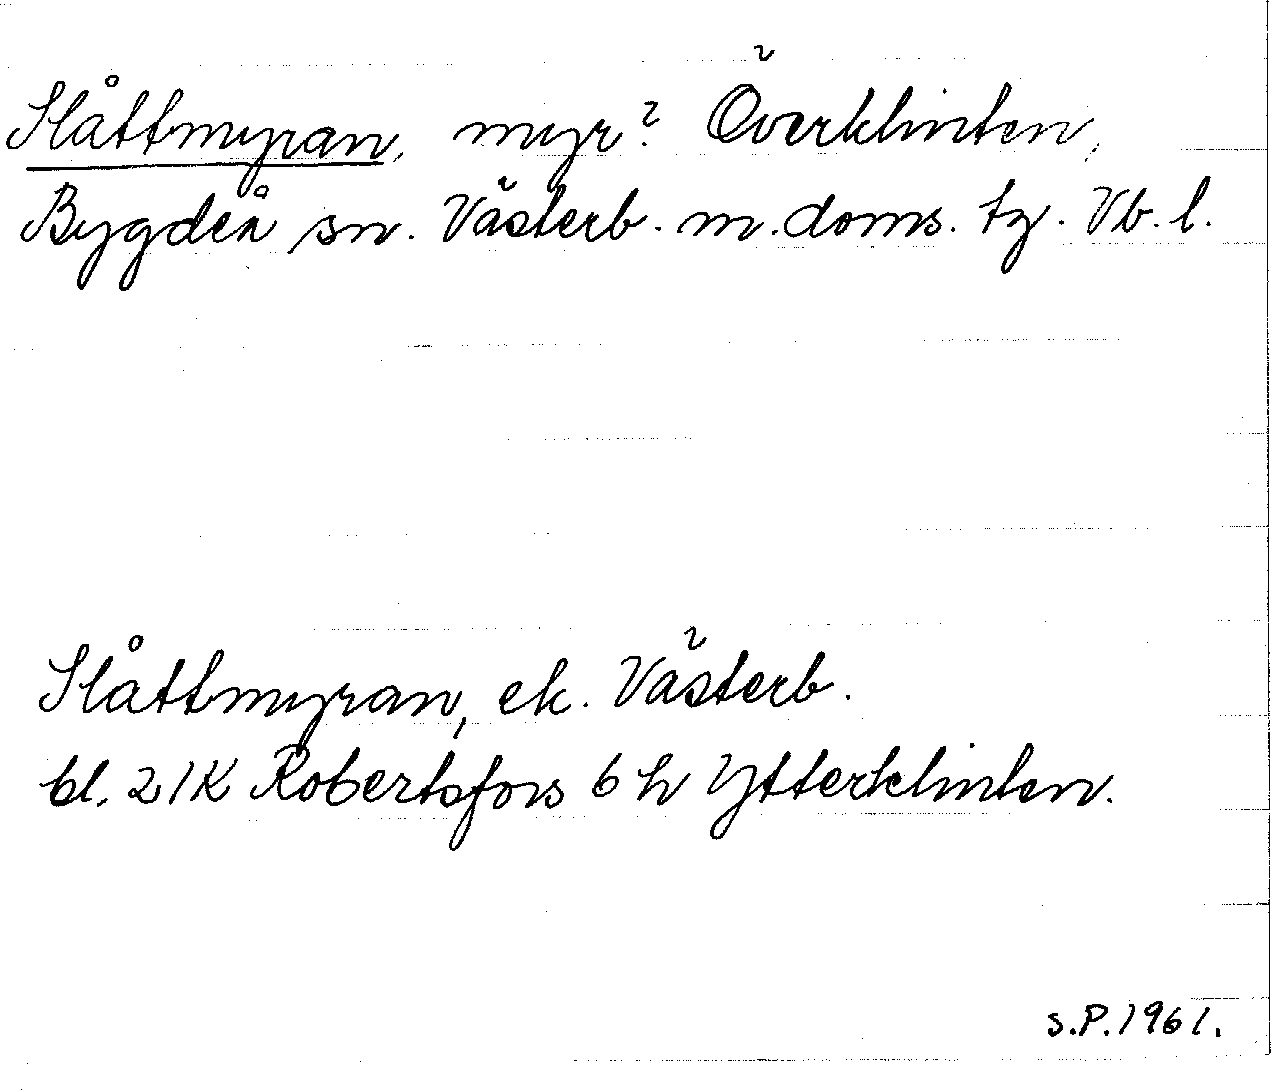 Slåttmyran, myr? Överklinten,
Bygdeå sn. Västerb. m. doms. tg. Vb. l.
Slåttmyran, ek. Västerb.
bl. 21K Robertsfors 6 h Ytterklinten.
S.P. 1961.